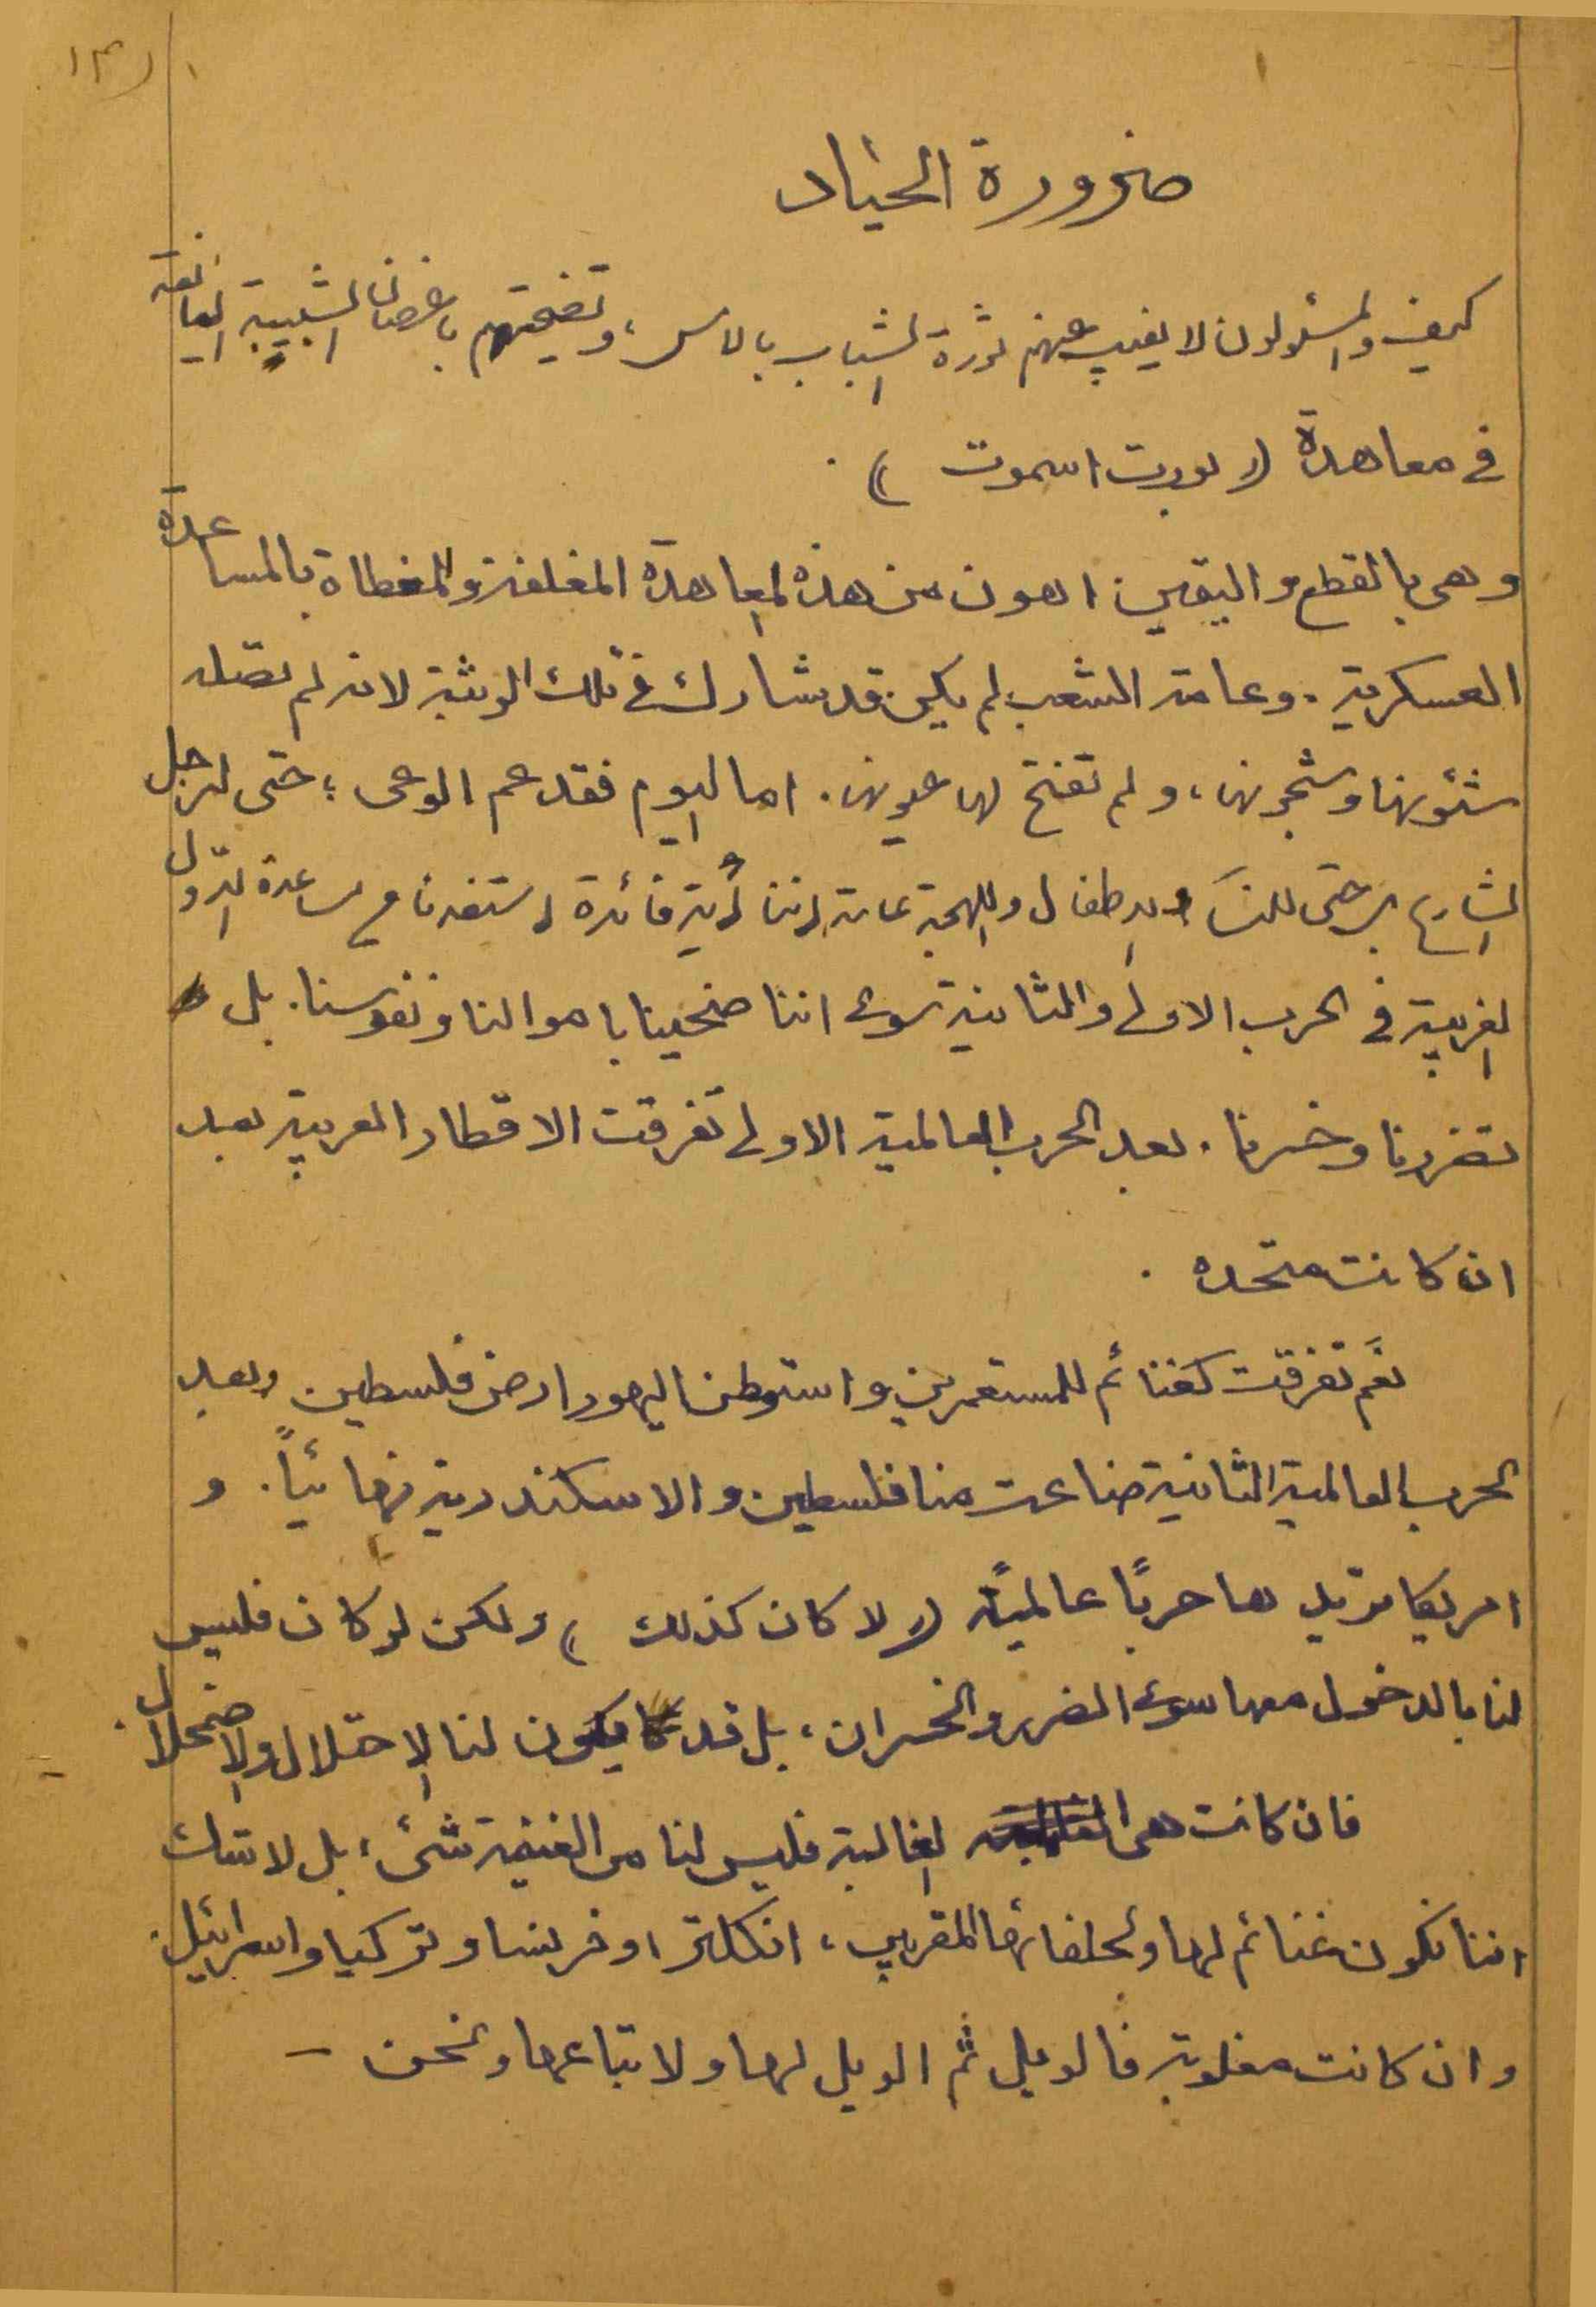 ضرورة الحياد
كيف والمسئولون لا يغيب عنهم ثورة الشباب بالامس، وتضحيتهم باغصان الشبيبة اليانعة
في معاهدة (( بورت اسموت )) .
وهي بالقطع واليقين اهون من هذه المعاهدة المغلفة والمغطاة بالمساعدة
العسكرية . وعامة الشعب لم يكن قد شارك في تلك الوثبة لانه لم تصله
شئونها وشجونها، ولم تفتح لها عيونه . اما اليوم فقد عم الوعي ؛ حتى لرجل
الشارع بل حتى للنساء والاطفال واللهجة عامة اننا أية فائدة استفدنا من مساعدة الدول
الغربية في الحرب الاولى والثانية سوى اننا ضحينا باموالنا ونفوسنا . بل
تضررنا وخسرنا . بعد الحرب العالمية الاولى تفرقت الاقطار العربية بعد
ان كانت متحده .
نعم تفرقت كغنائم للمستعمرين واستوطن اليهود ارض فلسطين وبعد
الحرب العالمية الثانية ضاعت منا فلسطين والاسكندرية نهائياً . و
امريكا تريدها حربًا عالميًة (( لا كان كذلك )) ولكن لو كان فليس
لنا بالدخول معها سوى الضرر والخسران ، بل قد يكون لنا الاحتلال والاضمحلال .
فان كانت هي الغالبة فليس لنا من الغنيمة شئ ، بل لا شك
اننا نكون غنائم لها ولحلفائها المقربين ، انكلترا وفرنسا وتركيا واسرائيل .
وان كانت مغلوبة فالويل ثم الويل لها ولاتباعها ونحن –